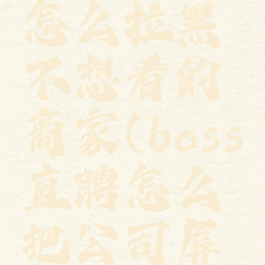 怎么拉黑
不想看的
商家(boss
直聘怎么
把公司屏